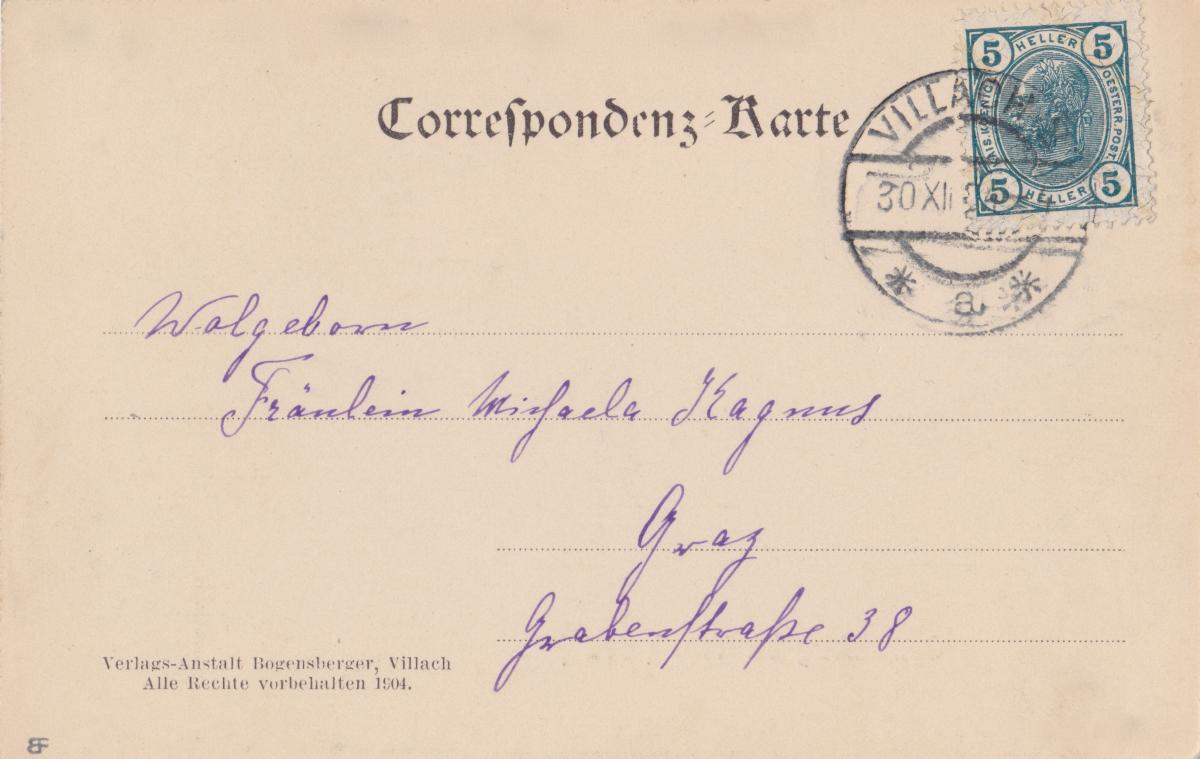 5 HELLER 5
KAIS. KOENIGL. OESTERR. POST.
5 HELLER 5
Correspondenz-Karte
VILLACH
30 XII
a
Wolgeborn
Fräulein Michaela Kagnus
Graz
Grabenstraße 38
Verlags-Anstalt Bogensberger, Villach
Alle Rechte vorbehalten 1904.
BF